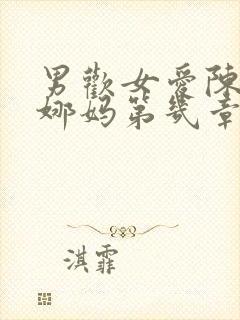 男歡女愛陳
娜媽第幾章
淇霏